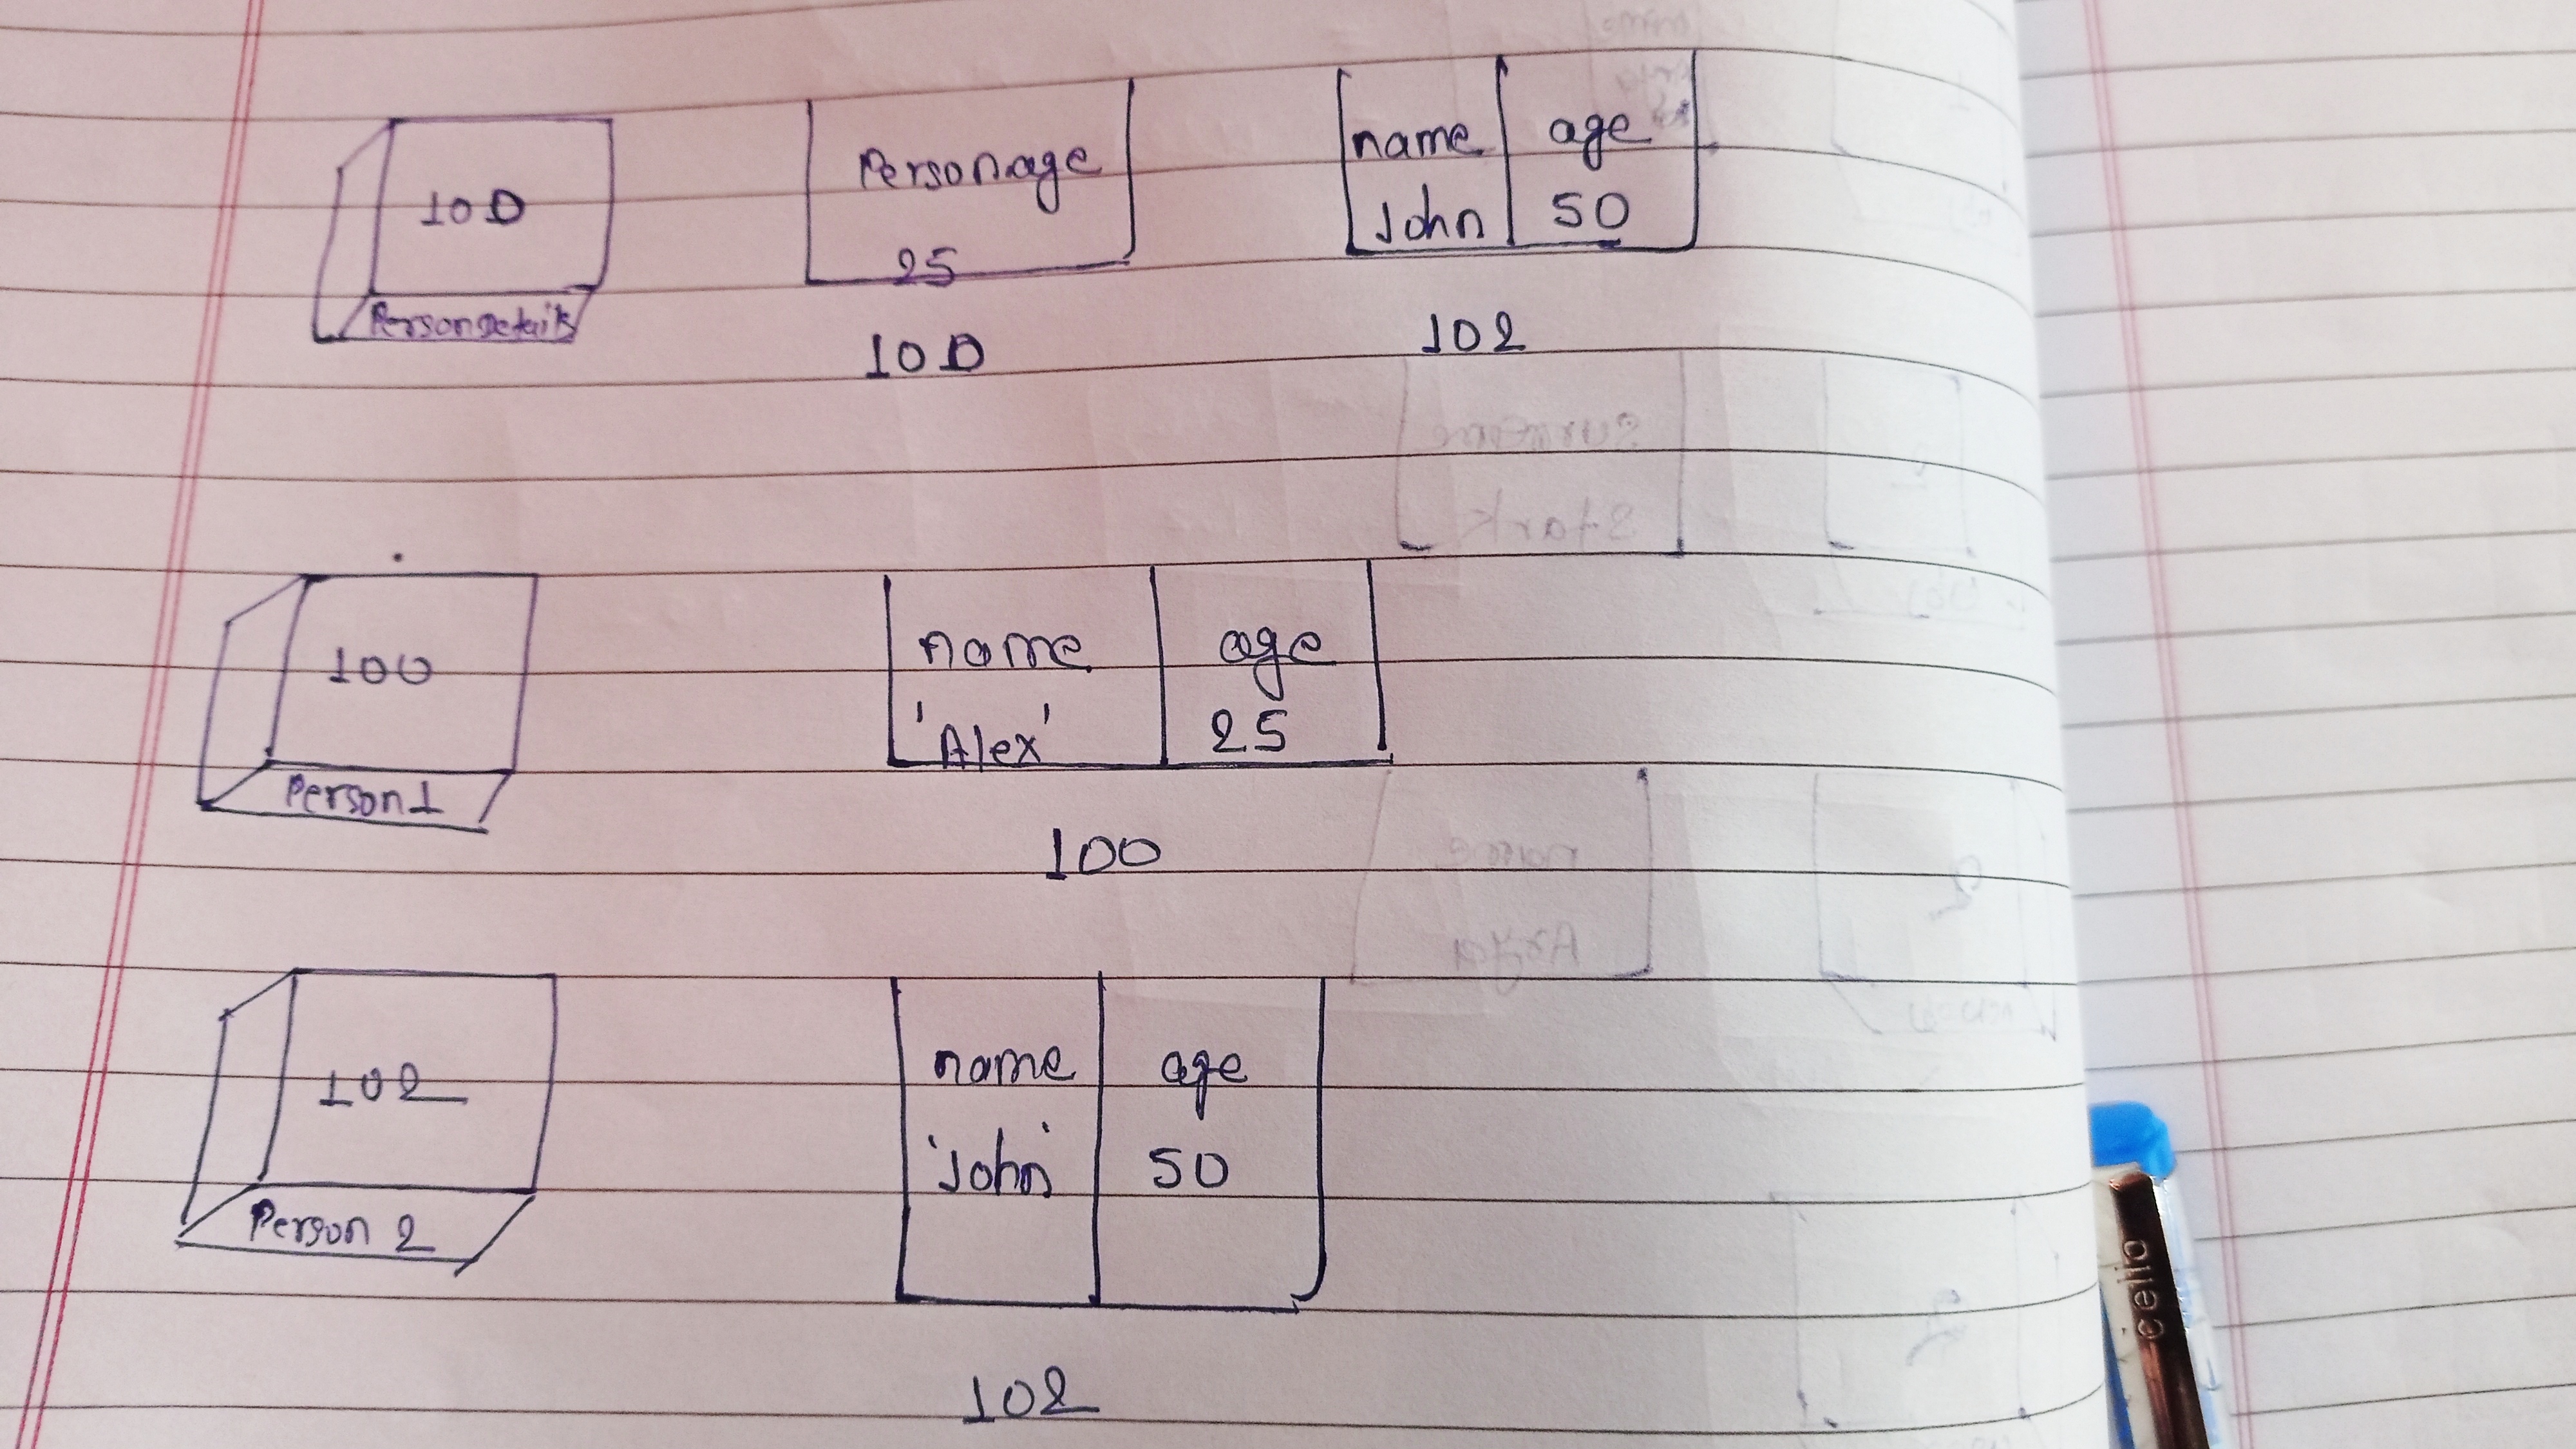 100
PersonDetails
Personage
25
100
name age
John 50
102
100
Person1
name age
'Alex' 25
100
102
Person 2
name age
'John' 50
102
cello